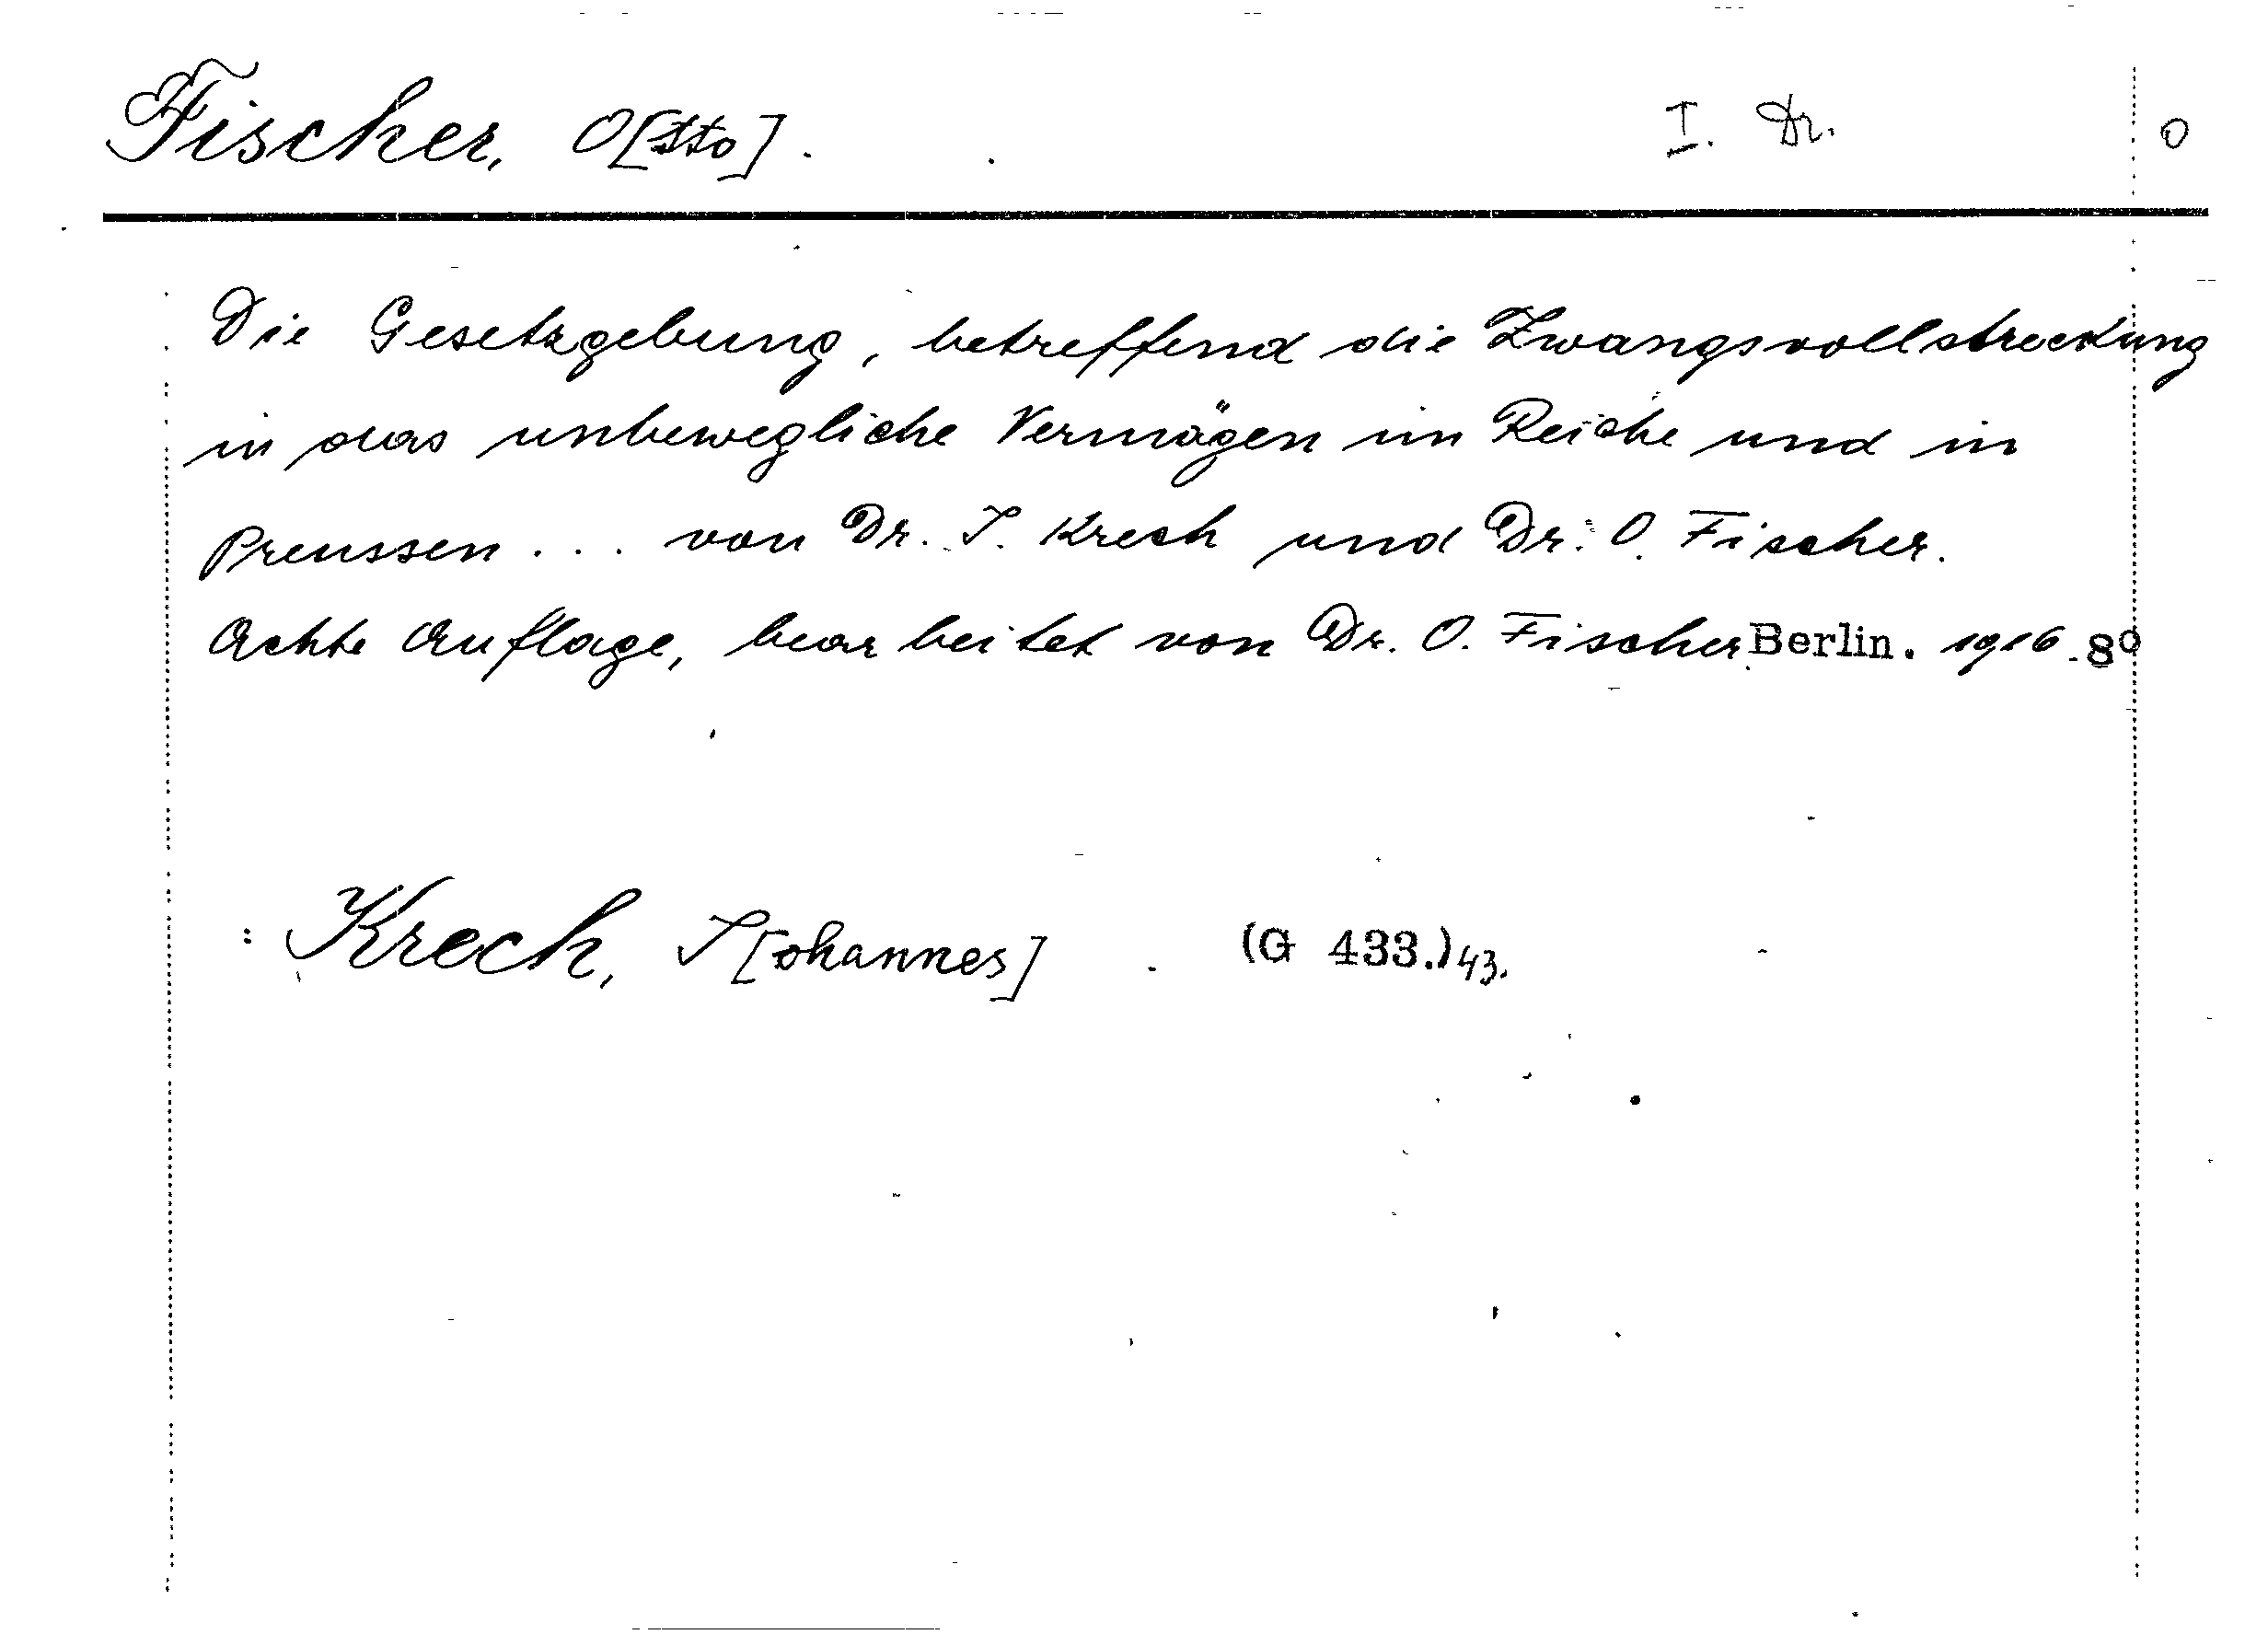 Fischer, O[tto]. I. Dr. O
Die Gesetzgebung, betreffend die Zwangsvollstreckung
in das unbewegliche Vermögen im Reiche und in
Preussen ... von Dr. J. Krech und Dr. O. Fischer.
Achte Auflage, bearbeitet von Dr. O. Fischer. Berlin. 1916. 8º
: Krech, J[ohannes] (G 433.) 43.